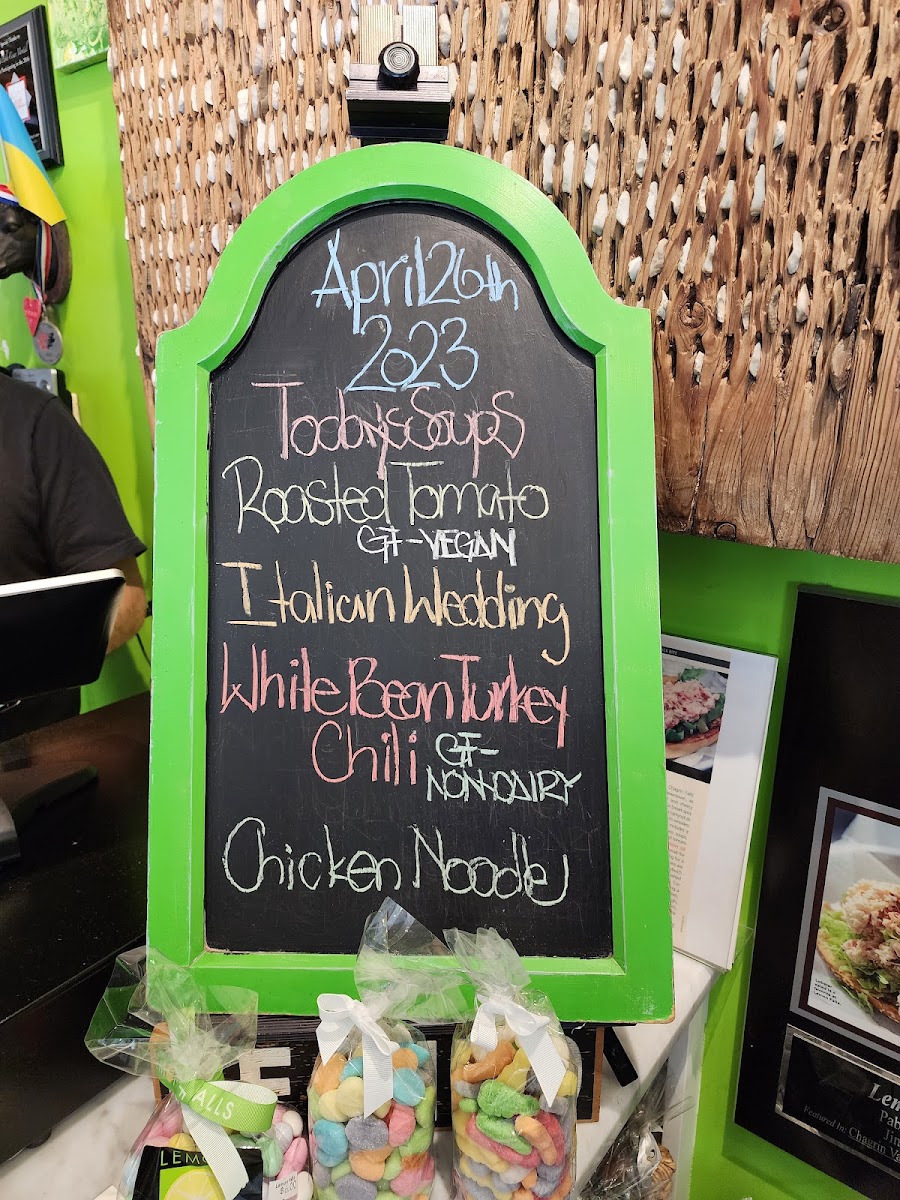 April 26th
2023
Todays Soups
Roasted Tomato
GF-VEGAN
Italian Wedding
White Bean Turkey
Chili GF-
NON-DAIRY
Chicken Noodle
ALLS
LEMO
Featured In: Chagrin Va